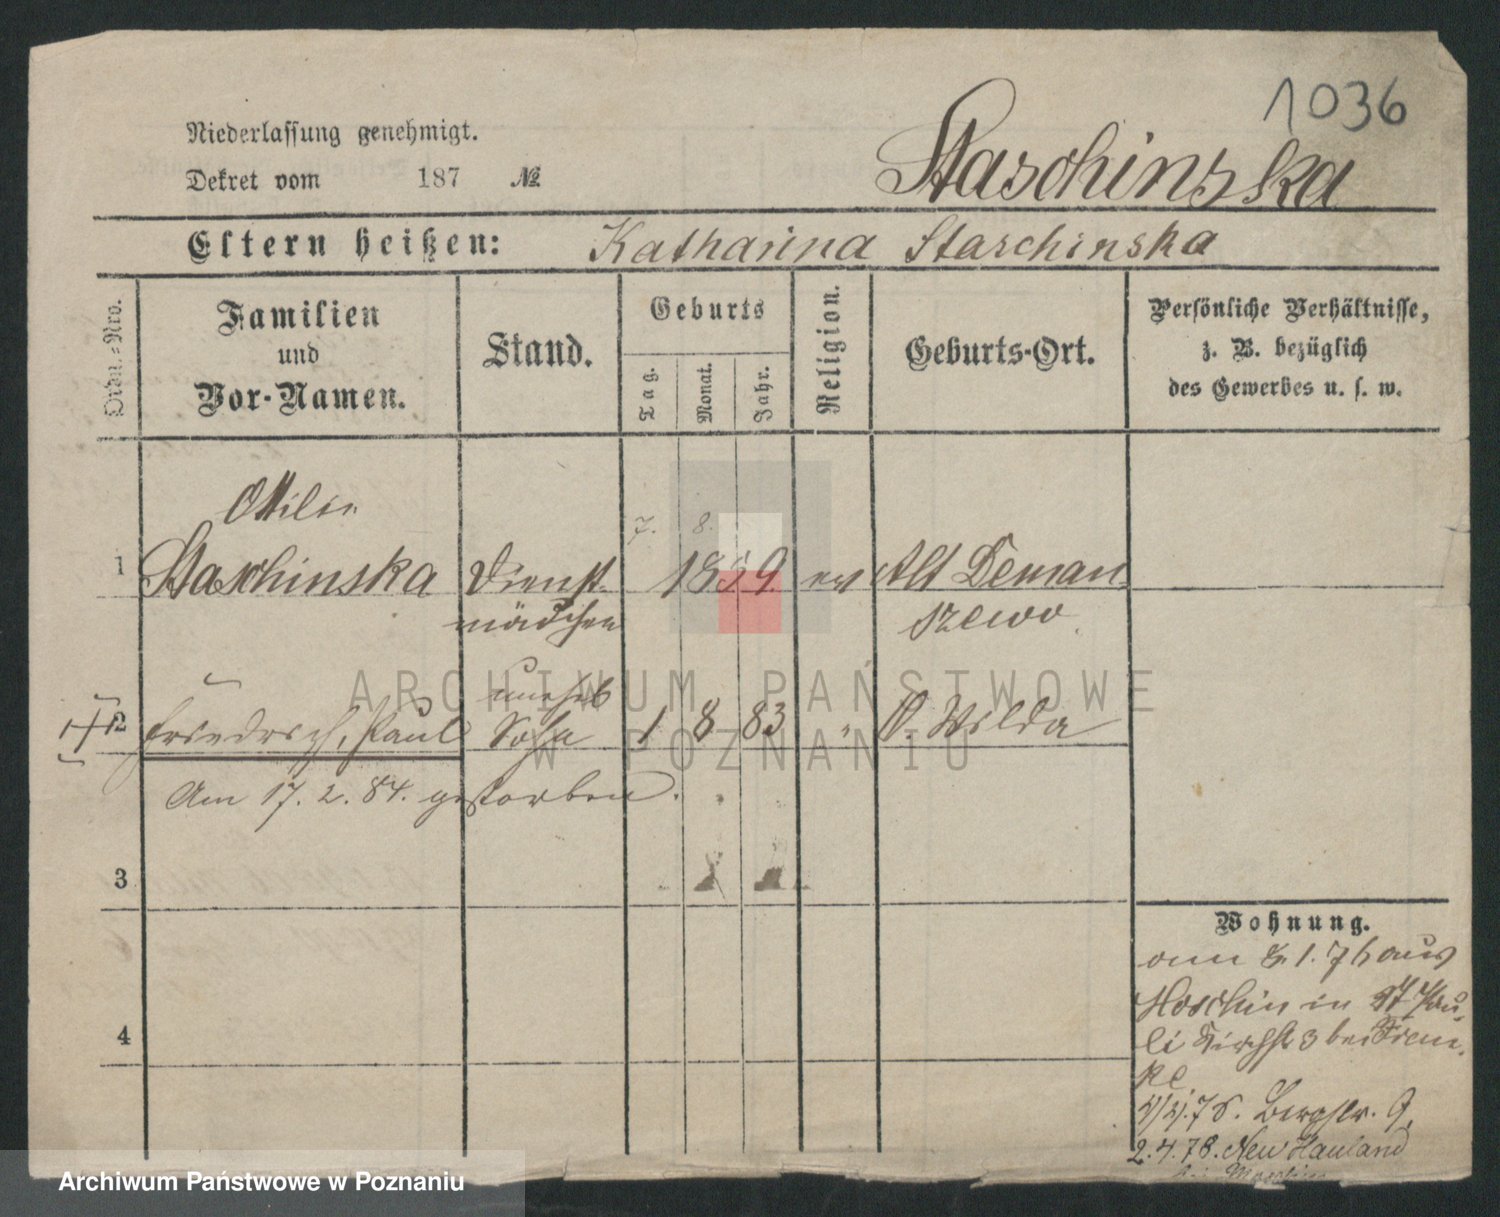 1036
Niederlassung genehmigt.
Dekret vom 187 №
Staschinska
Eltern heißen: Katharina Staschinska
Ordn.-Nro.
Familien
und
Vor-Namen.
Stand.
Geburts
Tag.
Monat.
Jahr.
Religion.
Geburts-Ort.
Persönliche Verhältnisse,
z. B. bezüglich
des Gewerbes u. s. w.
Ottilie
7. 8.
1 Staschinska Dienst- 1859. ev Alt Deman-
mädchen szewo
unehel
2 Friedrich, Paul Sohn 1 8 83 " O. Wilda
Am 17. 2. 84. gestorben.
3
4
Wohnung.
am 8.1.76 aus
Moschin in St Pau-
li Kirchstr 3 bei
Bergstr. 9.
2.4.78. Neu Hauland
ARCHIWUM PAŃSTWOWE
W POZNANIU
Archiwum Państwowe w Poznaniu